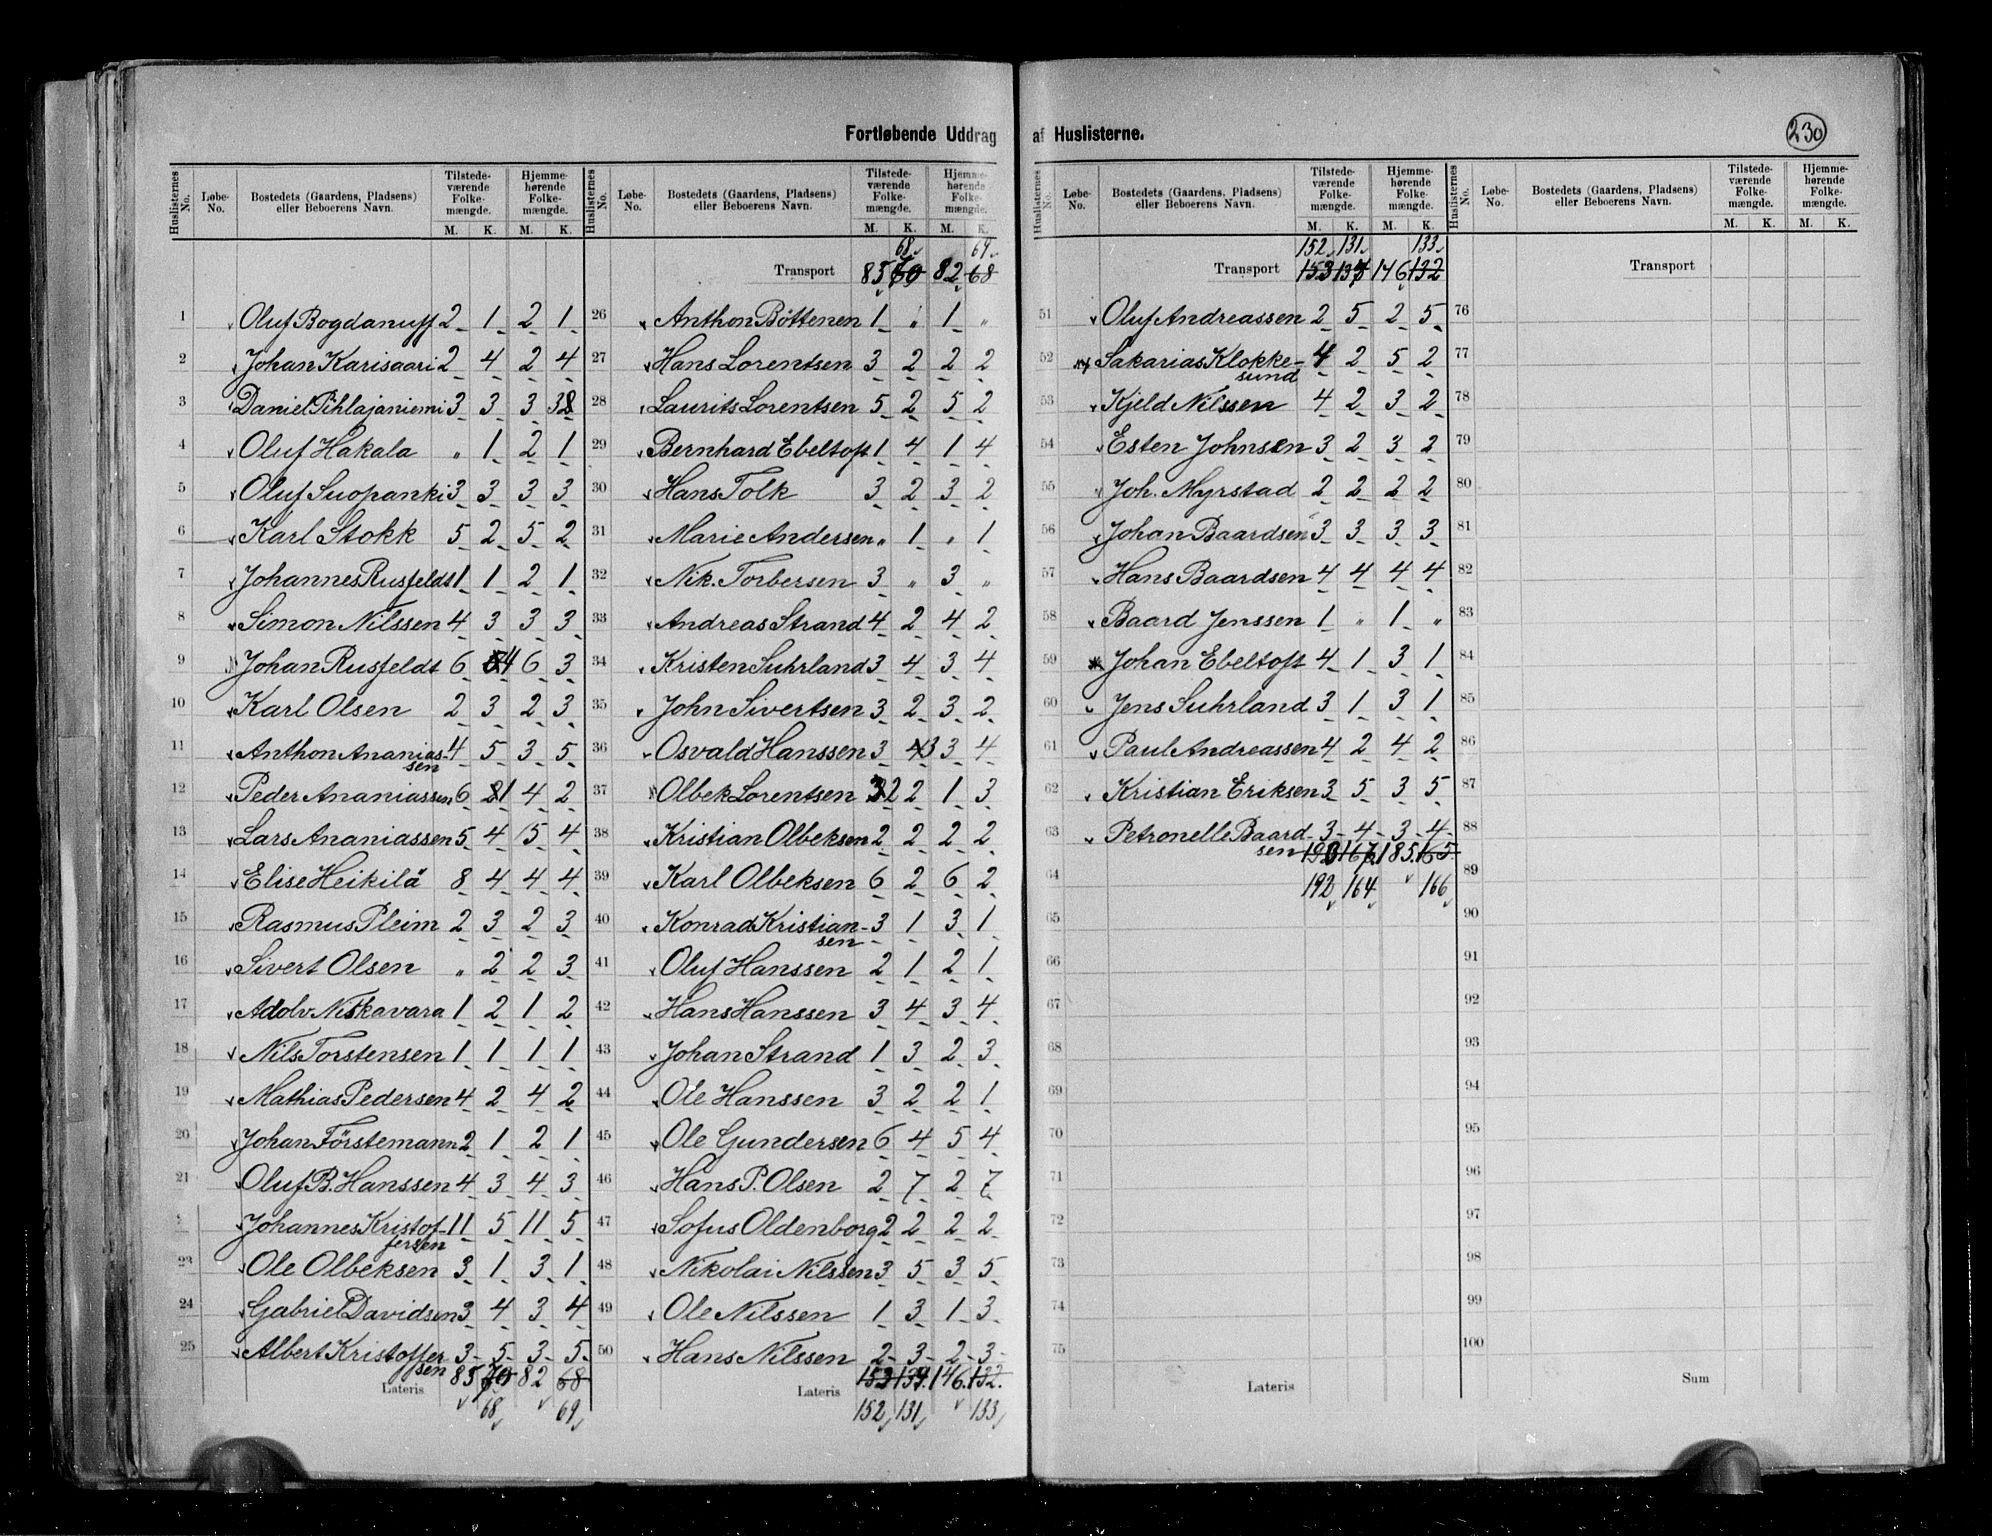 Fortløbende Uddrag af Huslisterne.
230
Huslisternes No. Løbe-No. Bostedets (Gaardens, Pladsens) eller Beboerens Navn. Tilstedeværende Folkemængde. M. K. Hjemmehørende Folkemængde. M. K.
1 Oluf Bogdanuff 2 1 2 1
2 Johan Karisaari 2 4 2 4
3 Daniel Pihlajaniemi 3 3 3 3
4 Oluf Hakala " 1 2 1
5 Oluf Suopanki 3 3 3 3
6 Karl Stokk 5 2 5 2
7 Johannes Rusfeldt 1 1 2 1
8 Simon Nilssen 4 3 3 3
9 Johan Rusfeldt 6 4 6 3
10 Karl Olsen 2 3 2 3
11 Anthon Ananias-
sen 4 5 3 5
12 Peder Ananiassen 6 1 4 2
13 Lars Ananiassen 5 4 5 4
14 Elise Heikilä 8 4 4 4
15 Rasmus Pleim 2 3 2 3
16 Sivert Olsen " 2 2 3
17 Adolv Niskavara 1 2 1 2
18 Nils Torstensen 1 1 1 1
19 Mathias Pedersen 4 2 4 2
20 Johan Förstemann 2 1 2 1
21 Oluf B. Hanssen 4 3 4 3
Johannes Kristof-
fersen 11 5 11 5
23 Ole Olbeksen 3 1 3 1
24 Gabriel Davidsen 3 4 3 4
25 Albert Kristoffer
sen 3 5 3 5
Lateris 85 70 82 68
68 69
Huslisternes No. Løbe-No. Bostedets (Gaardens, Pladsens) eller Beboerens Navn. Tilstedeværende Folkemængde. M. K. Hjemmehørende Folkemængde. M. K.
68 69
Transport 85 70 82 68
26 Anthon Böttenen 1 " 1 "
27 Hans Lorentsen 3 2 2 2
28 Laurits Lorentsen 5 2 5 2
29 Bernhard Ebeltoft 1 4 1 4
30 Hans Tolk 3 2 3 2
31 Marie Andersen " 1 " 1
32 Nik. Torbersen 3 " 3 "
33 Andreas Strand 4 2 4 2
34 Kristen Suhrland 3 4 3 4
35 John Sivertsen 3 2 3 2
36 Osvald Hanssen 3 4 3 3 4
37 Olbek Lorentsen 3 2 2 1 3
38 Kristian Olbeksen 2 2 2 2
39 Karl Olbeksen 6 2 6 2
40 Konrad Kristian-
sen 3 1 3 1
41 Oluf Hanssen 2 1 2 1
42 Hans Hanssen 3 4 3 4
43 Johan Strand 1 3 2 3
44 Ole Hanssen 3 2 2 1
45 Ole Gundersen 6 4 5 4
46 Hans P. Olsen 2 7 2 7
47 Sofus Oldenborg 2 2 2 2
48 Nikolai Nilssen 3 5 3 5
49 Ole Nilssen 1 3 1 3
50 Hans Nilssen 2 3 2 3
Lateris 153 146 132
152 131 133
Huslisternes No. Løbe-No. Bostedets (Gaardens, Pladsens) eller Beboerens Navn. Tilstedeværende Folkemængde. M. K. Hjemmehørende Folkemængde. M. K.
152 131 133
Transport 153 146 132
51 Oluf Andreassen 2 5 2 5
52 Sakarias Klokke-
sund 4 2 5 2
53 Kjeld Nilssen 4 2 3 2
54 Esten Johnsen 3 2 3 2
55 Joh. Myrstad 2 2 2 2
56 Johan Baardsen 3 3 3 3
57 Hans Baardsen 4 4 4 4
58 Baard Jenssen 1 " 1 "
59 Johan Ebeltoft 4 1 3 1
60 Jens Suhrland 3 1 3 1
61 Paul Andreassen 4 2 4 2
62 Kristian Eriksen 3 5 3 5
63 Petronelle Baard-
sen 3 4 3 4
193 167 185 165
64 192 164 166
65
66
67
68
69
70
71
72
73
74
75
Lateris
Huslisternes No. Løbe-No. Bostedets (Gaardens, Pladsens) eller Beboerens Navn. Tilstedeværende Folkemængde. M. K. Hjemmehørende Folkemængde. M. K.
Transport
76
77
78
79
80
81
82
83
84
85
86
87
88
89
90
91
92
93
94
95
96
97
98
99
100
Sum